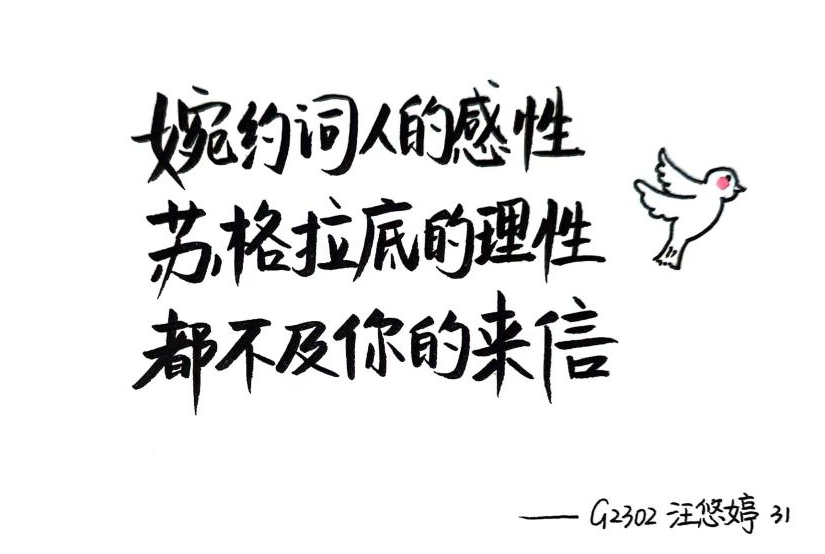 婉约词人的感性
苏格拉底的理性
都不及你的来信
—— G2302 汪悠婷 31